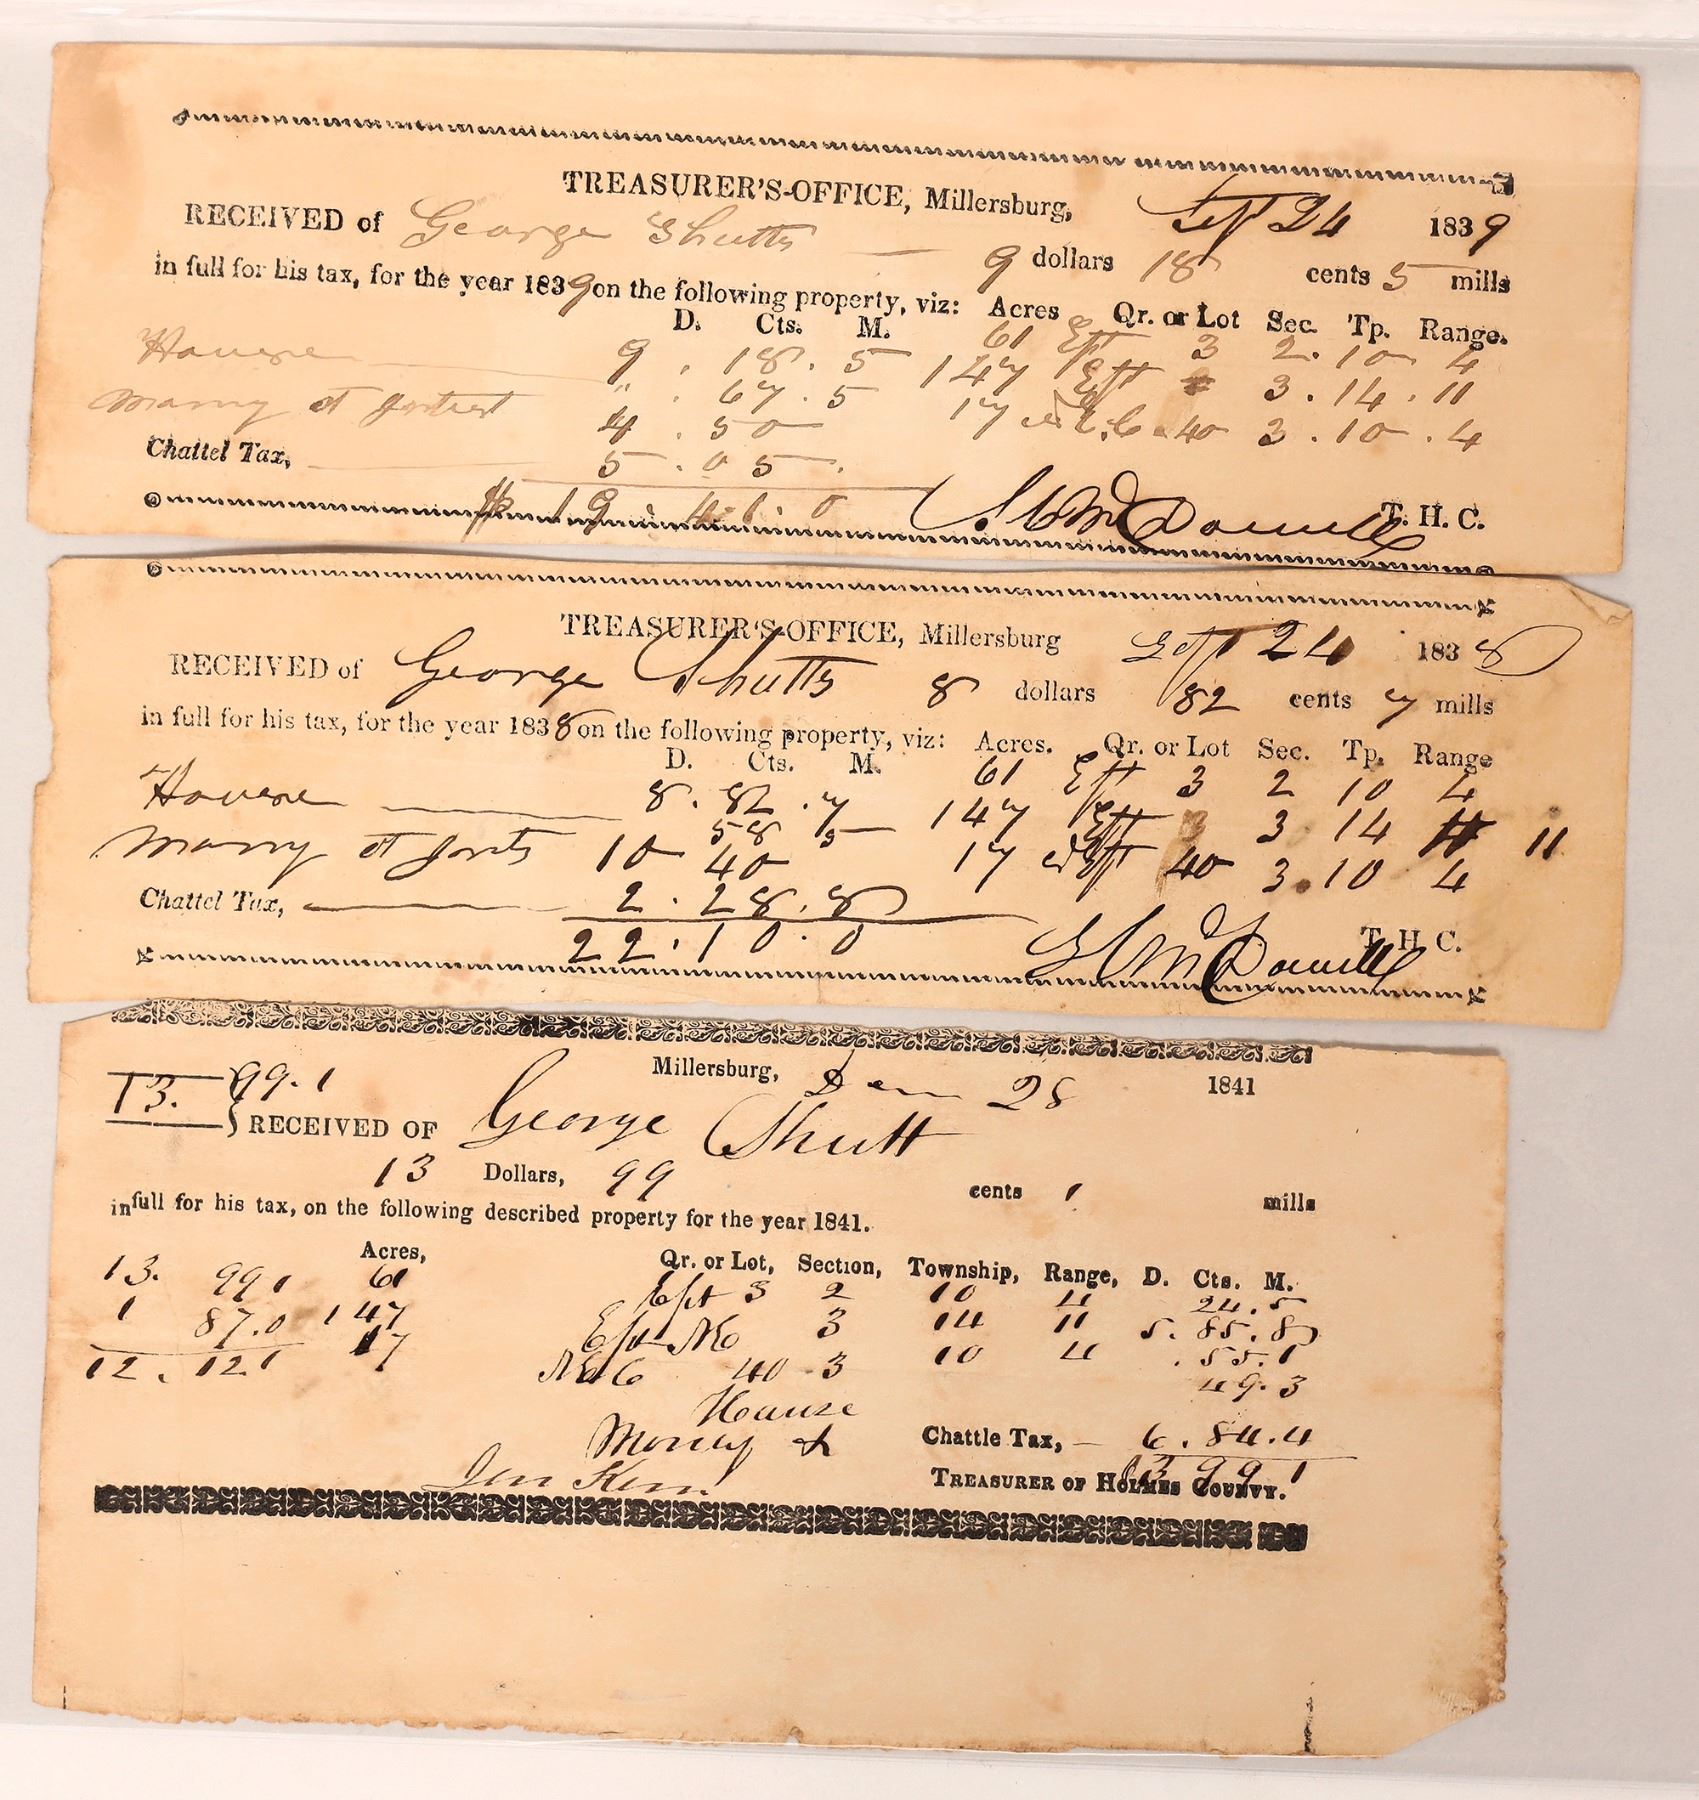 TREASURER'S-OFFICE, Millersburg, Sept 24 1839
RECEIVED of George Shutts 9 dollars 18 cents 5 mills
in full for his tax, for the year 1839 on the following property, viz: Acres Qr. or Lot Sec. Tp. Range.
D. Cts. M. 61 Ept 3 2. 10 4
House 9 . 18 . 5 147 Ept 3 . 14 . 11
" . 67 . 5 17 40 3 . 10 . 4
4 . 50
Chattel Tax, 5 . 05 .
$19 . 41 . 0 McDowell T. H. C.
TREASURER'S-OFFICE, Millersburg Sept 24 1838
RECEIVED of George Shutts 8 dollars 82 cents 7 mills
in full for his tax, for the year 1838 on the following property, viz: Acres. Qr. or Lot Sec. Tp. Range
D. Cts. M. 61 Ept 3 2 10 4
House 8 . 82 . 7 147 Ept 3 3 14 11
58 5 17 40 3 . 10 4
10 40
Chattel Tax, 2 . 28 . 8
22 . 10 . 0 McDowell T. H. C.
Millersburg, Dem 28 1841
13. 99.1 } RECEIVED OF George Shutt
13 Dollars, 99 cents 1 mills
in full for his tax, on the following described property for the year 1841.
Acres, Qr. or Lot, Section, Township, Range, D. Cts. M.
13. 99 1 61 Ept 3 2 10 4 24.5
1 87.0 147 Ept NE 3 14 11 5. 85. 8
12. 12 1 17 40 3 10 4 . 55.1
49.3
House
Money & Chattle Tax, 6. 84.4
13 99 1
TREASURER OF HOLMES COUNTY.